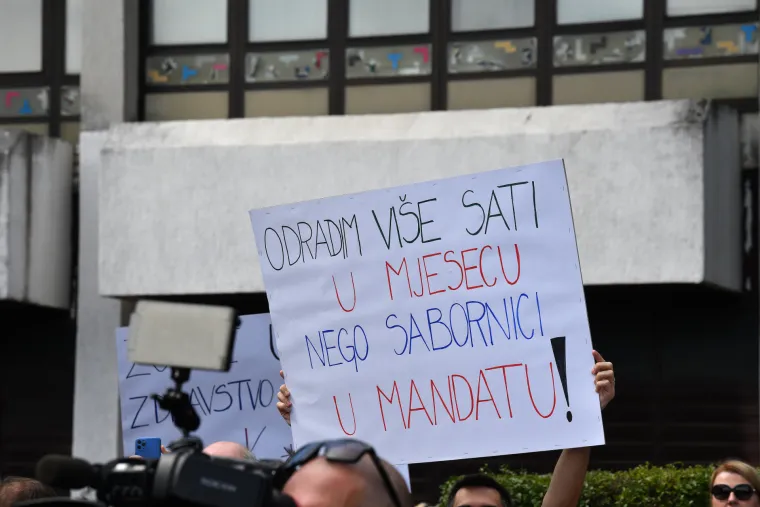 ODRADIM VIŠE SATI
U MJESECU
NEGO SABORNICI
U MANDATU!
ZDRAVSTVO